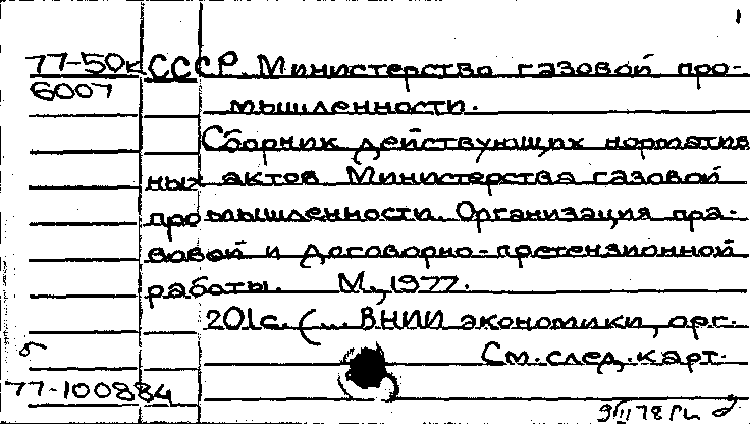 1
77-50к СССР. Министерство газовой про-
6007 мышленности.
Сборник действующих норматив
ных актов Министерства газовой
промышленности. Организация пра-
вовой и договорно-претензионной
работы. М., 1977.
201с. (... ВНИИ экономики, орг.
См. след. карт.
77-100884
9/II 78